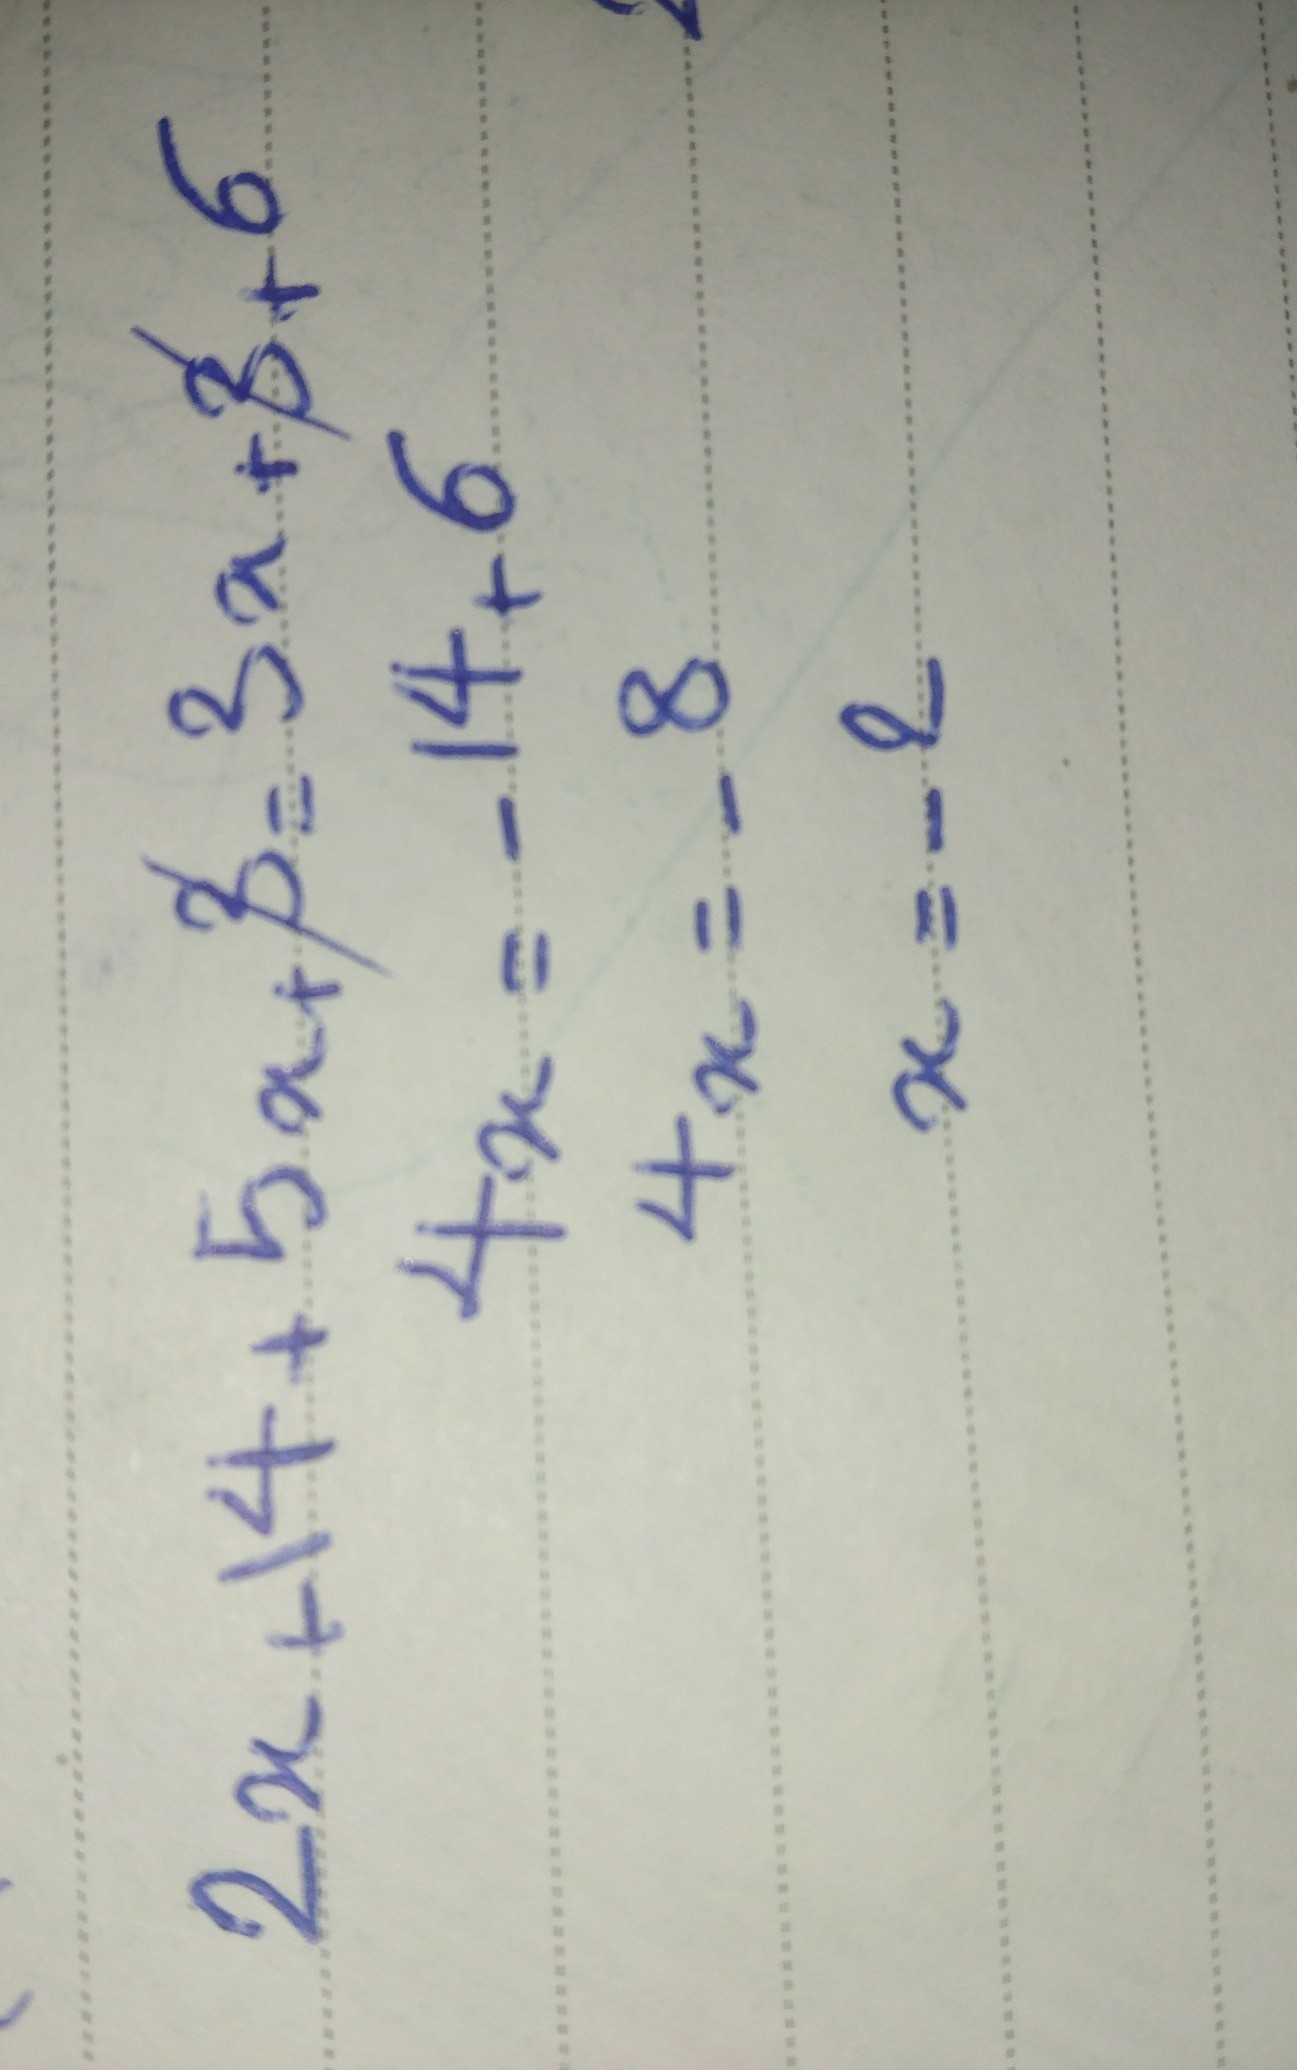 2x+14+5x+3=3x+3+6
4x=-14+6
4x=-8
x=-2